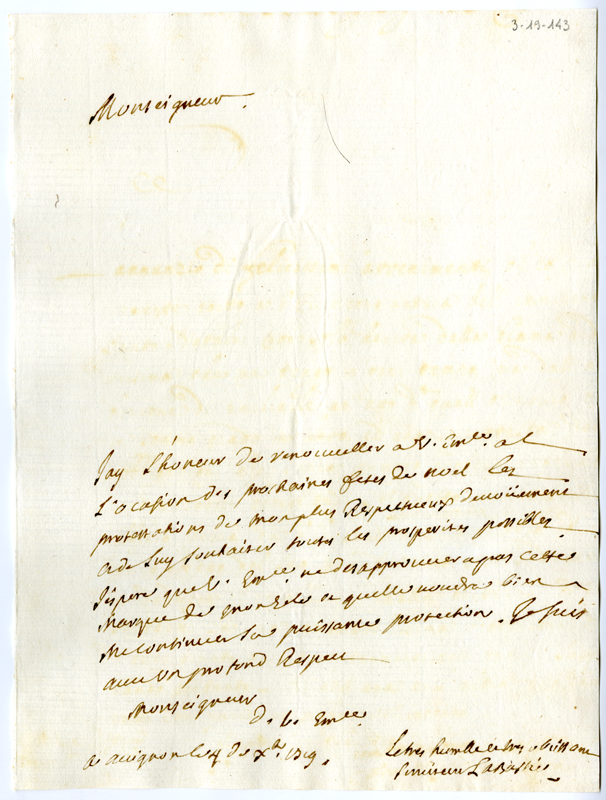 3-19-143
Monseigneur
Jay L'honeur de renouveller a V. Em.ce a l
L'ocasion des prochaines fetes de noel les
protestations de mon plus Respectueux devoüement
et de luy souhaiter toutes les prosperites possibles
J'espere que V. Em.ce ne desapprouvera pas cette
Marque de mon zele et quelle voudra bien
Me continuer sa puissante protection. Je suis
avec un profond Respect
Monseigneur
De V. Em.ce
a avignon le 4 de Xbre 1719.
Le tres humble et tres obeissant
serviteur